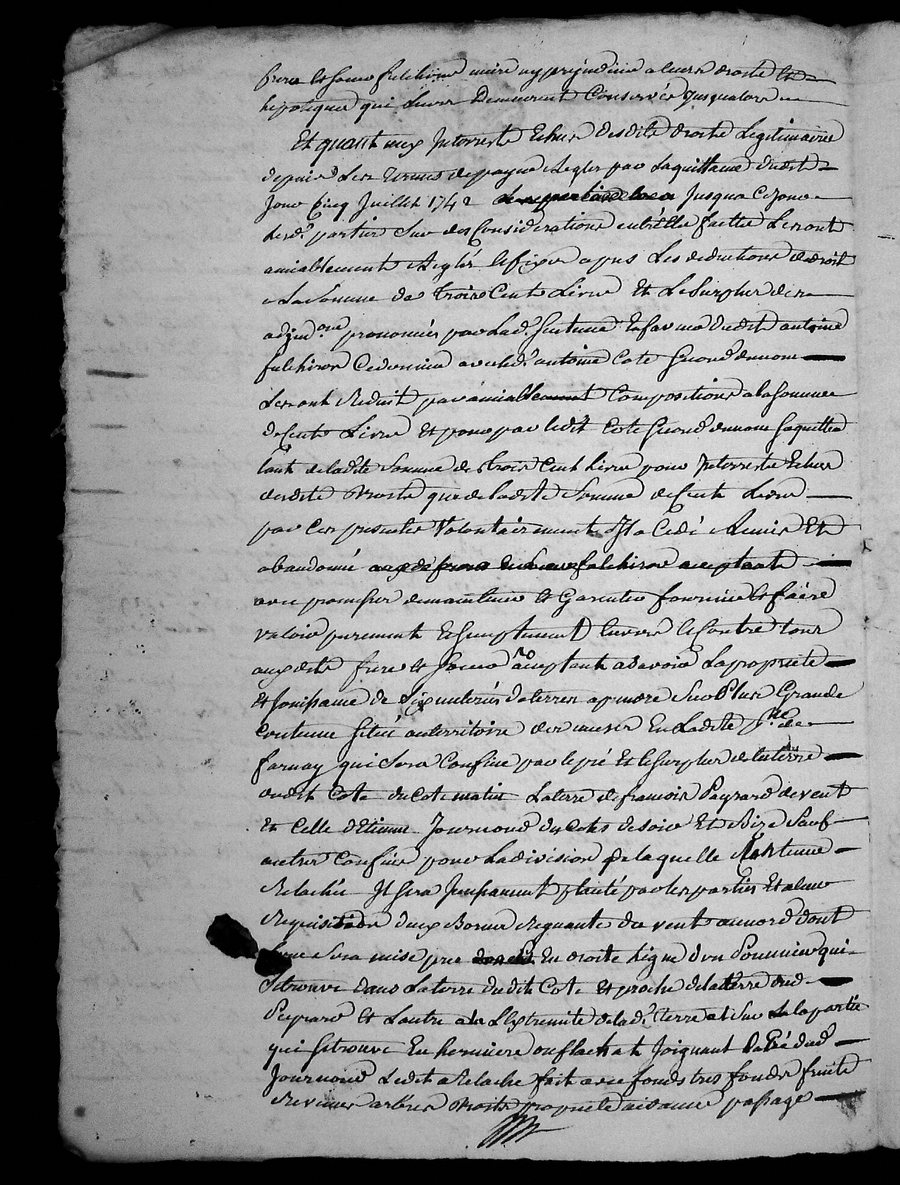 frere et soeur fulchiron nuire ny prejudicier a leurs droits et
hipoteques qui Leurs Demeurent Conservés Jusqualors
Et quant aux Interests Echus desdits droits Legitimaires
depuis Les termes de payes Regles par la quittance dudit
Jour Cinq Juillet 1742 Jusqua Ce Jour
lesd. parties Sur des Considerations entr'elle faittes Les ont
amiablement Reglés et fixés apres Les deductions de droit
a La Somme de Trois Cents Livres Et Le Surplus des
adjud.ons prononcées par Lad. Sentence En faveur dudit antoine
fulchiron avec led. antoine Cote Second du nom
Les ont Reduit par amiablement Compositions a la somme
de Cents Livres Et pour par ledit Cote Second du nom Saquitter
tant de ladite Somme de trois Cent Livres pour Interests Echus
desdits Droits que de ladite Somme de Cents Livres
par Ces presentes Volontairement Il a Cedé Remis Et
abandonné auxdits frere et soeur fulchiron acceptants
avec promesse de maintenir et Garentir fournir et faire
valoir purement Et simplement Envers et Contre tous
auxdits frere et Soeur acceptants a Savoir La proprieté
Et Jouissance de Six meterées de terres a prendre Sur Plus Grande
Contenue Situé au territoire des muses En Ladite p.sse de
farnay qui Sera Confiné par le pré Et le Surplus de la terre
dudit Cote du Coté matin La terre de francois Peyrard de vent
Et Celle d'Etienne Journoud du Cotés de Soir Et Bize Sauf
autres Confins pour La division de laquelle Contenue
Relachée Il Sera Incessament planté par les parties Et a leur
Requisition deux Bornes du vent au nord dont
L'une Sera mise En droite Ligne d'un Pommier qui
Se trouve dans La terre dudit Cote Et proche de la terre dud.
Peyrard Et L'autre a La L'Extremité de lad. terre et Sur La La partie
qui Se trouve En hermiere Joignant Le Pré dud.
Journoud Ledit Relaché fait avec fonds tres fonds fruits
Revenus arbres Droits proprieté aisances passage